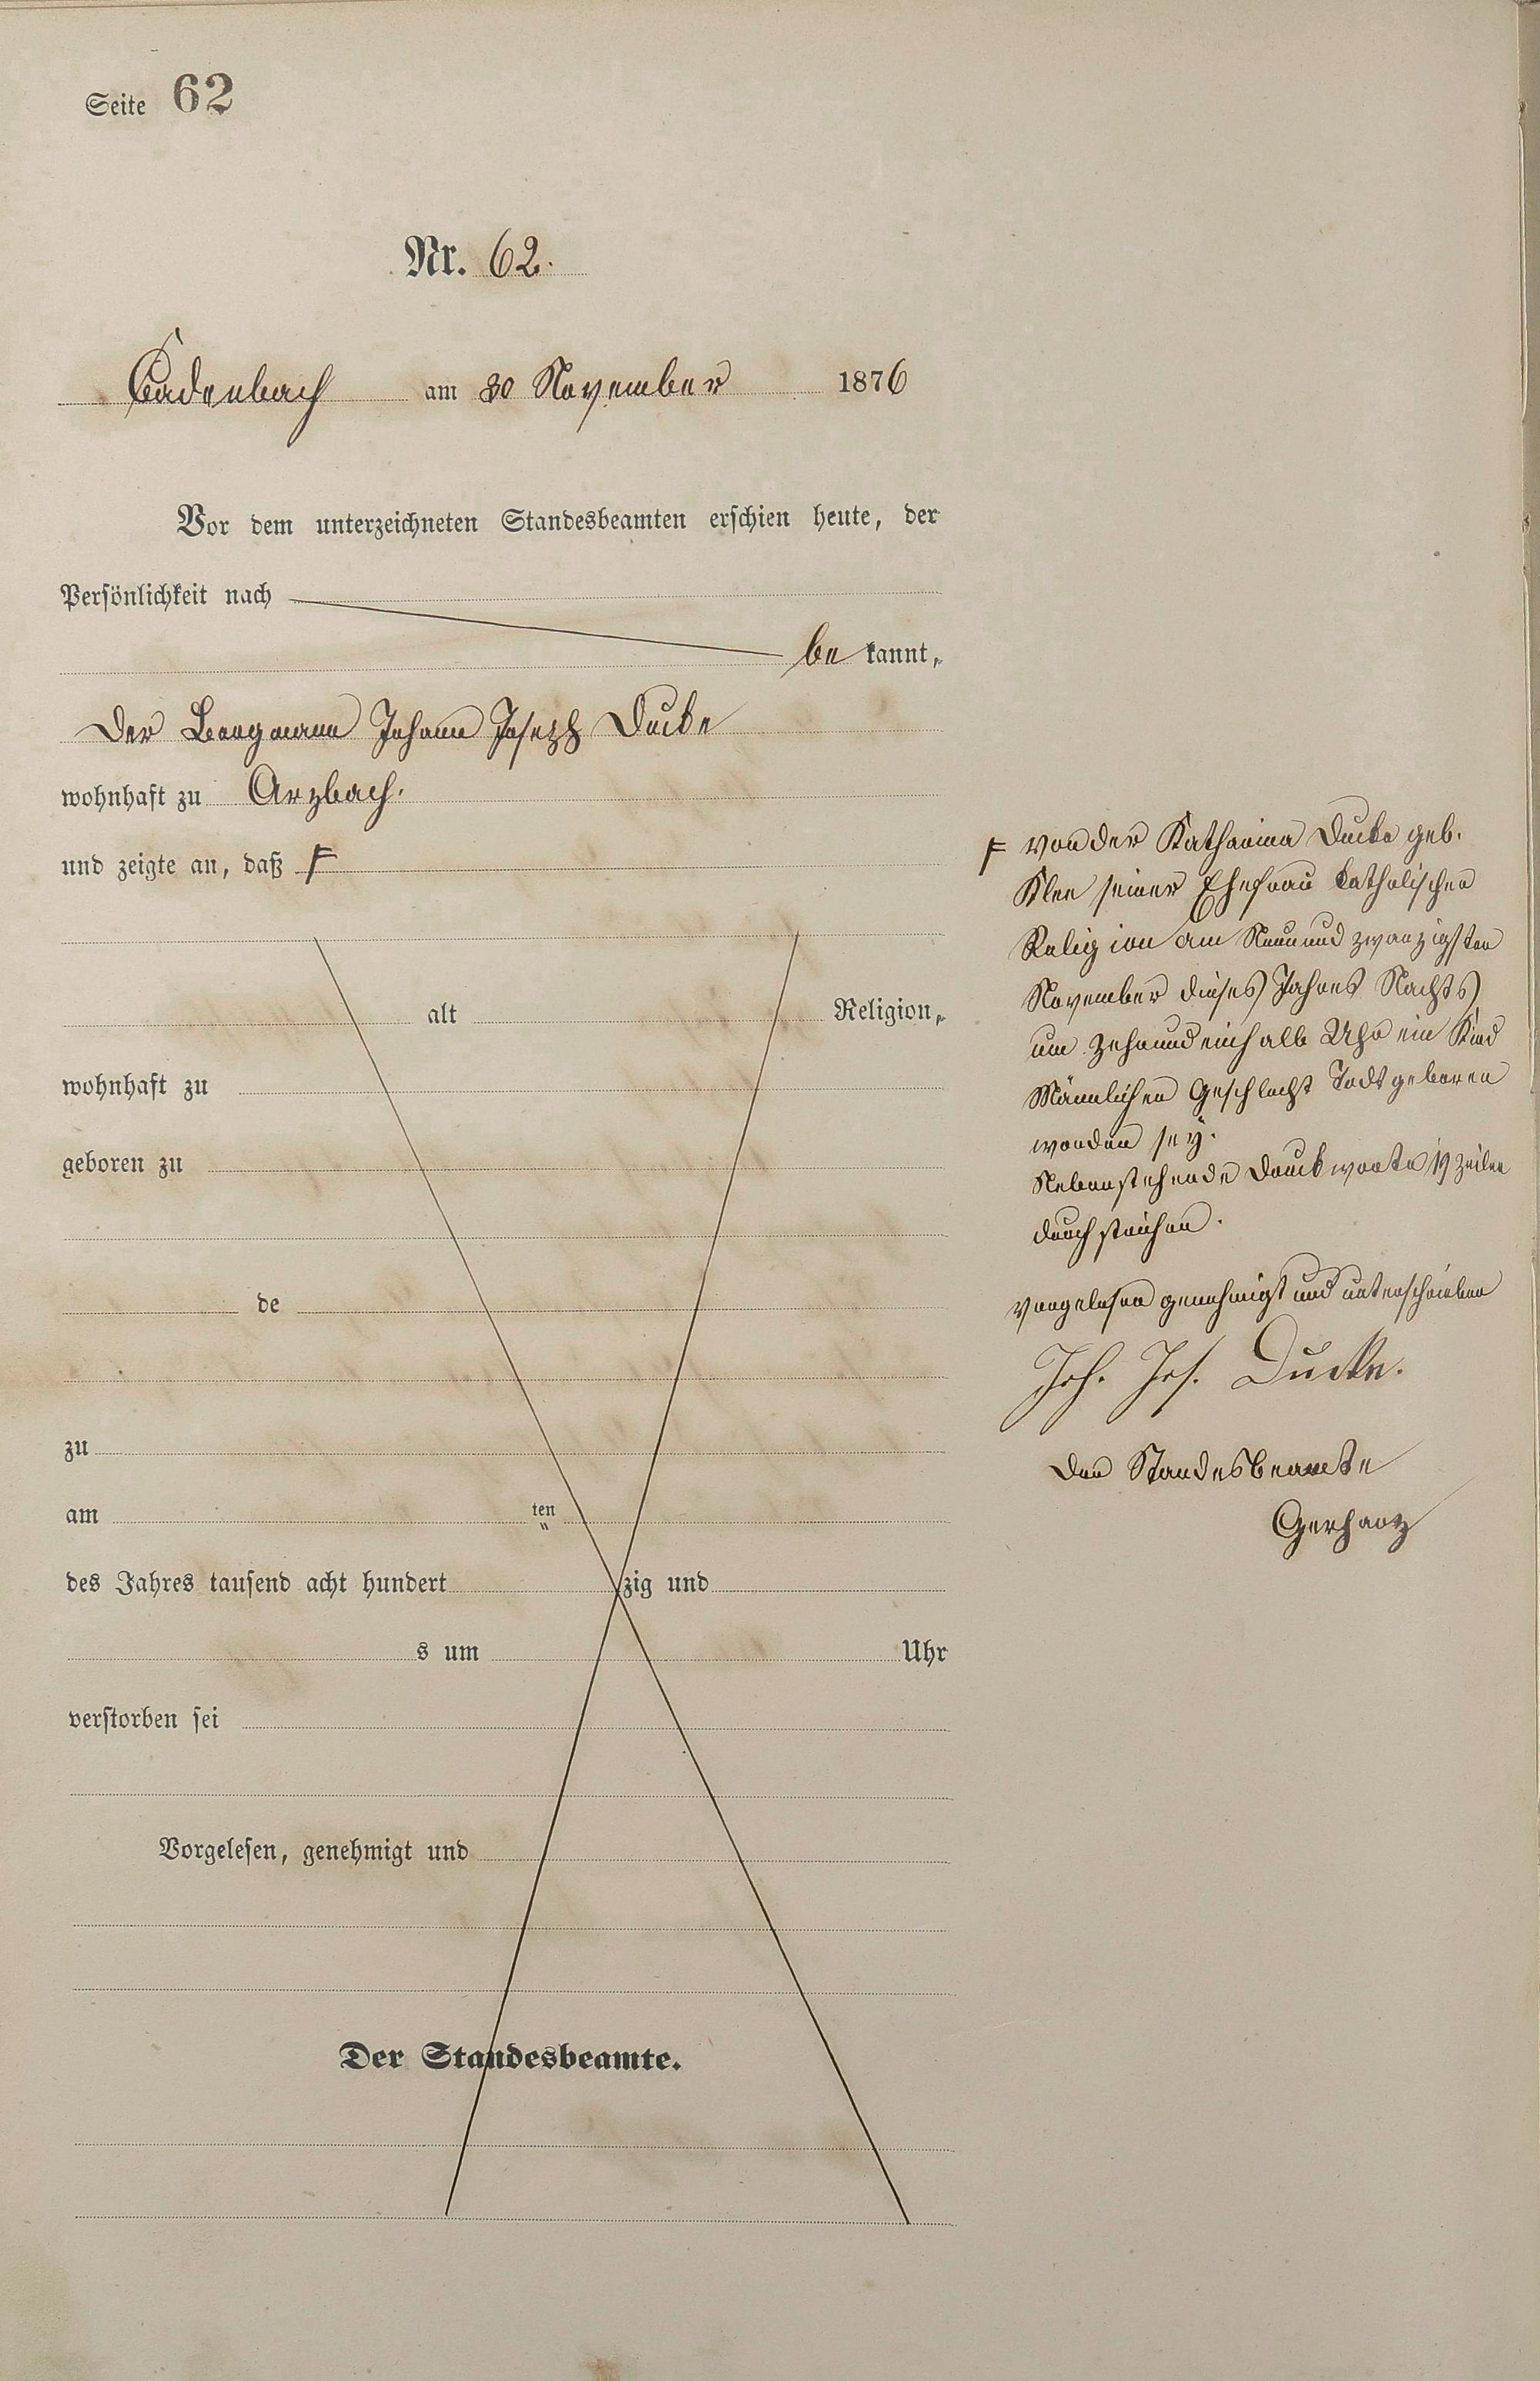 Seite 62
Nr. 62.
Cadenbach am 30 November 1876
Vor dem unterzeichneten Standesbeamten erschien heute, der
Persönlichkeit nach
be kannt,
Der Bergmann Johann Joseph Ducke
wohnhaft zu Arzbach.
und zeigte an, daß F
alt Religion,
wohnhaft zu
geboren zu
de
zu
am ten
des Jahres tausend acht hundert zig und
s um Uhr
verstorben sei
Vorgelesen, genehmigt und
Der Standesbeamte.
F von der Katharina Ducke geb.
Klee seiner Ehefrau katholischer
Religion am Neunundzwanzigsten
November dieses Jahres Nachts
um zehnundeinhalb Uhr ein Kind
Männlichen Geschlecht Todt geboren
worden sey.
Nebenstehende Druckworte 19 Zeilen
durchstrichen.
Vorgelesen genehmigt und unterschrieben
Joh. Jos. Ducke.
Der Standesbeamte
Gerharz